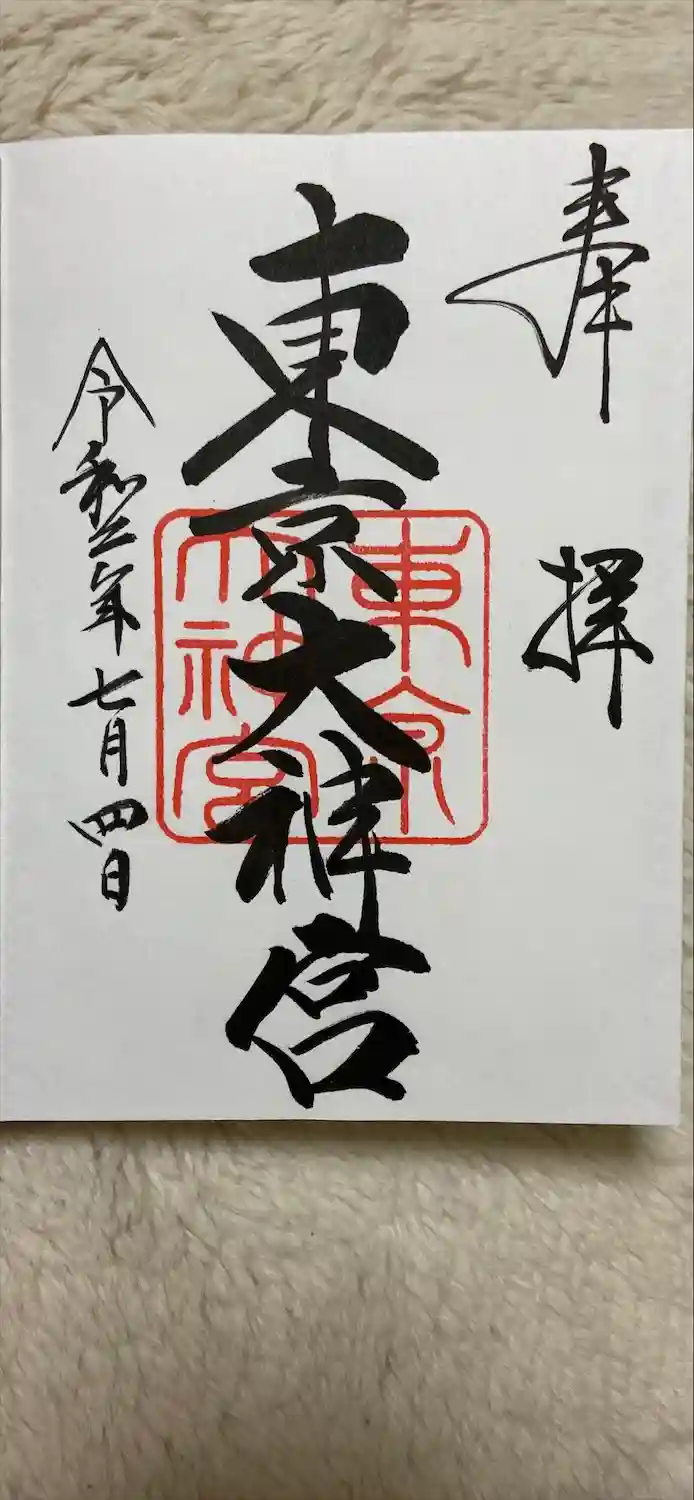 奉拝
東京大神宮
東京大神宮
令和二年七月四日